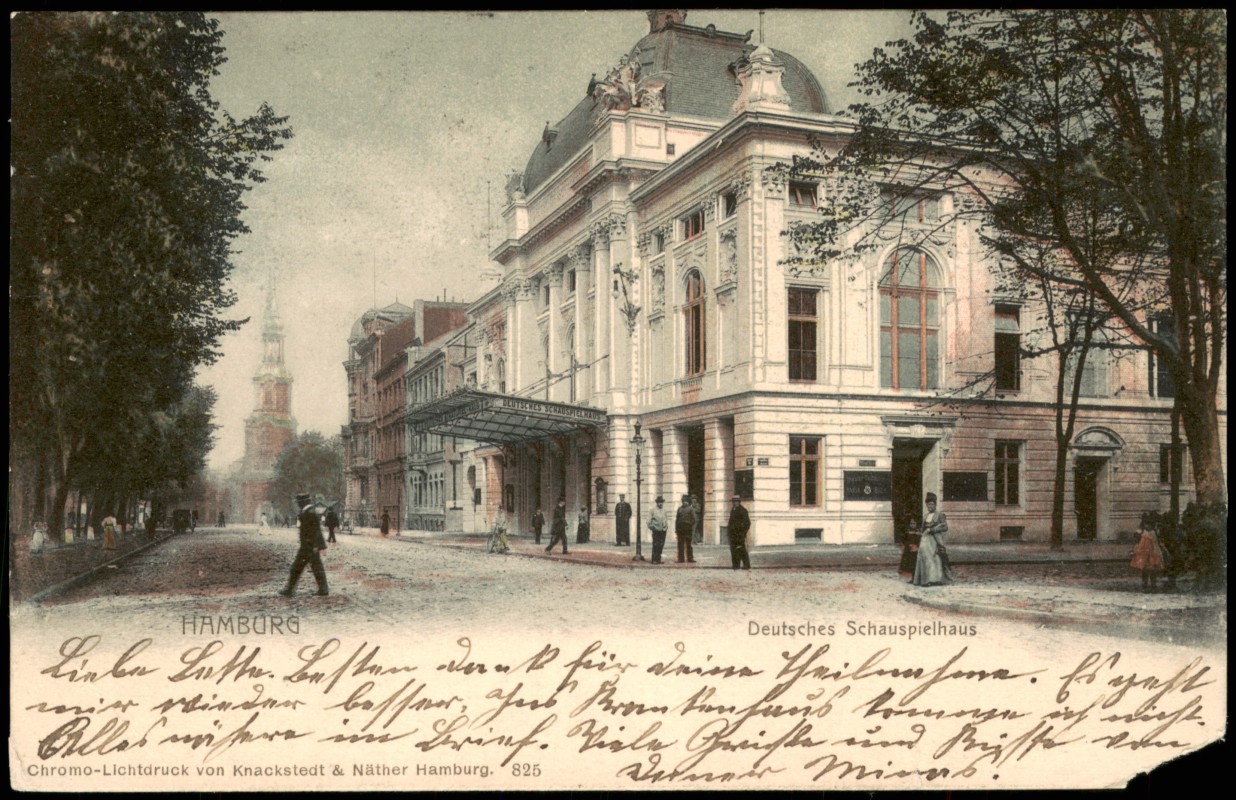 DEUTSCHES SCHAUSPIELHAUS
HAMBURG
Deutsches Schauspielhaus
Liebe Lotte. Besten Dank für deine Theilnahme. Es geht
mir wieder besser, Ins Krankenhaus komme ich nicht.
Alles nähere im Brief. Viele Grüße und Küsse von
Deiner
Chromo-Lichtdruck von Knackstedt & Näther Hamburg. 825